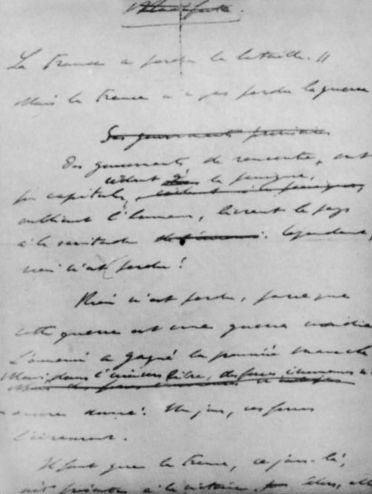 La France a perdu la bataille !!
Mais la France n'a pas perdu la guerre
Des gouvernants provisoires
Des gouvernants de rencontre, ont
cédant à la panique,
pu capituler,
oubliant l'honneur, livrant le pays
à la servitude. Cependant,
rien n'est perdu !
Rien n'est perdu, parce que
cette guerre est une guerre mondiale
L'ennemi a gagné la première manche
Mais, dans l'univers libre, des forces immenses n'
encore donné. Un jour, ces forces
l'ennemi.
Il faut que la France, ce jour-là,
soit présente à la victoire,